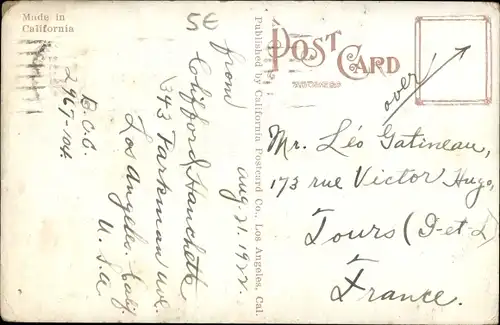 Made in
California
5€
POST CARD
Published by California Postcard Co., Los Angeles, Cal.
over
from
Aug. 21. 1922.
Clifford Hanchett
343 Parkman ave.
Los Angeles. Calif.
U.S.A
B.C.C.
2967-104.
Mr. Léo Gatineau,
173 rue Victor Hugo,
Tours (I-et-L)
France.